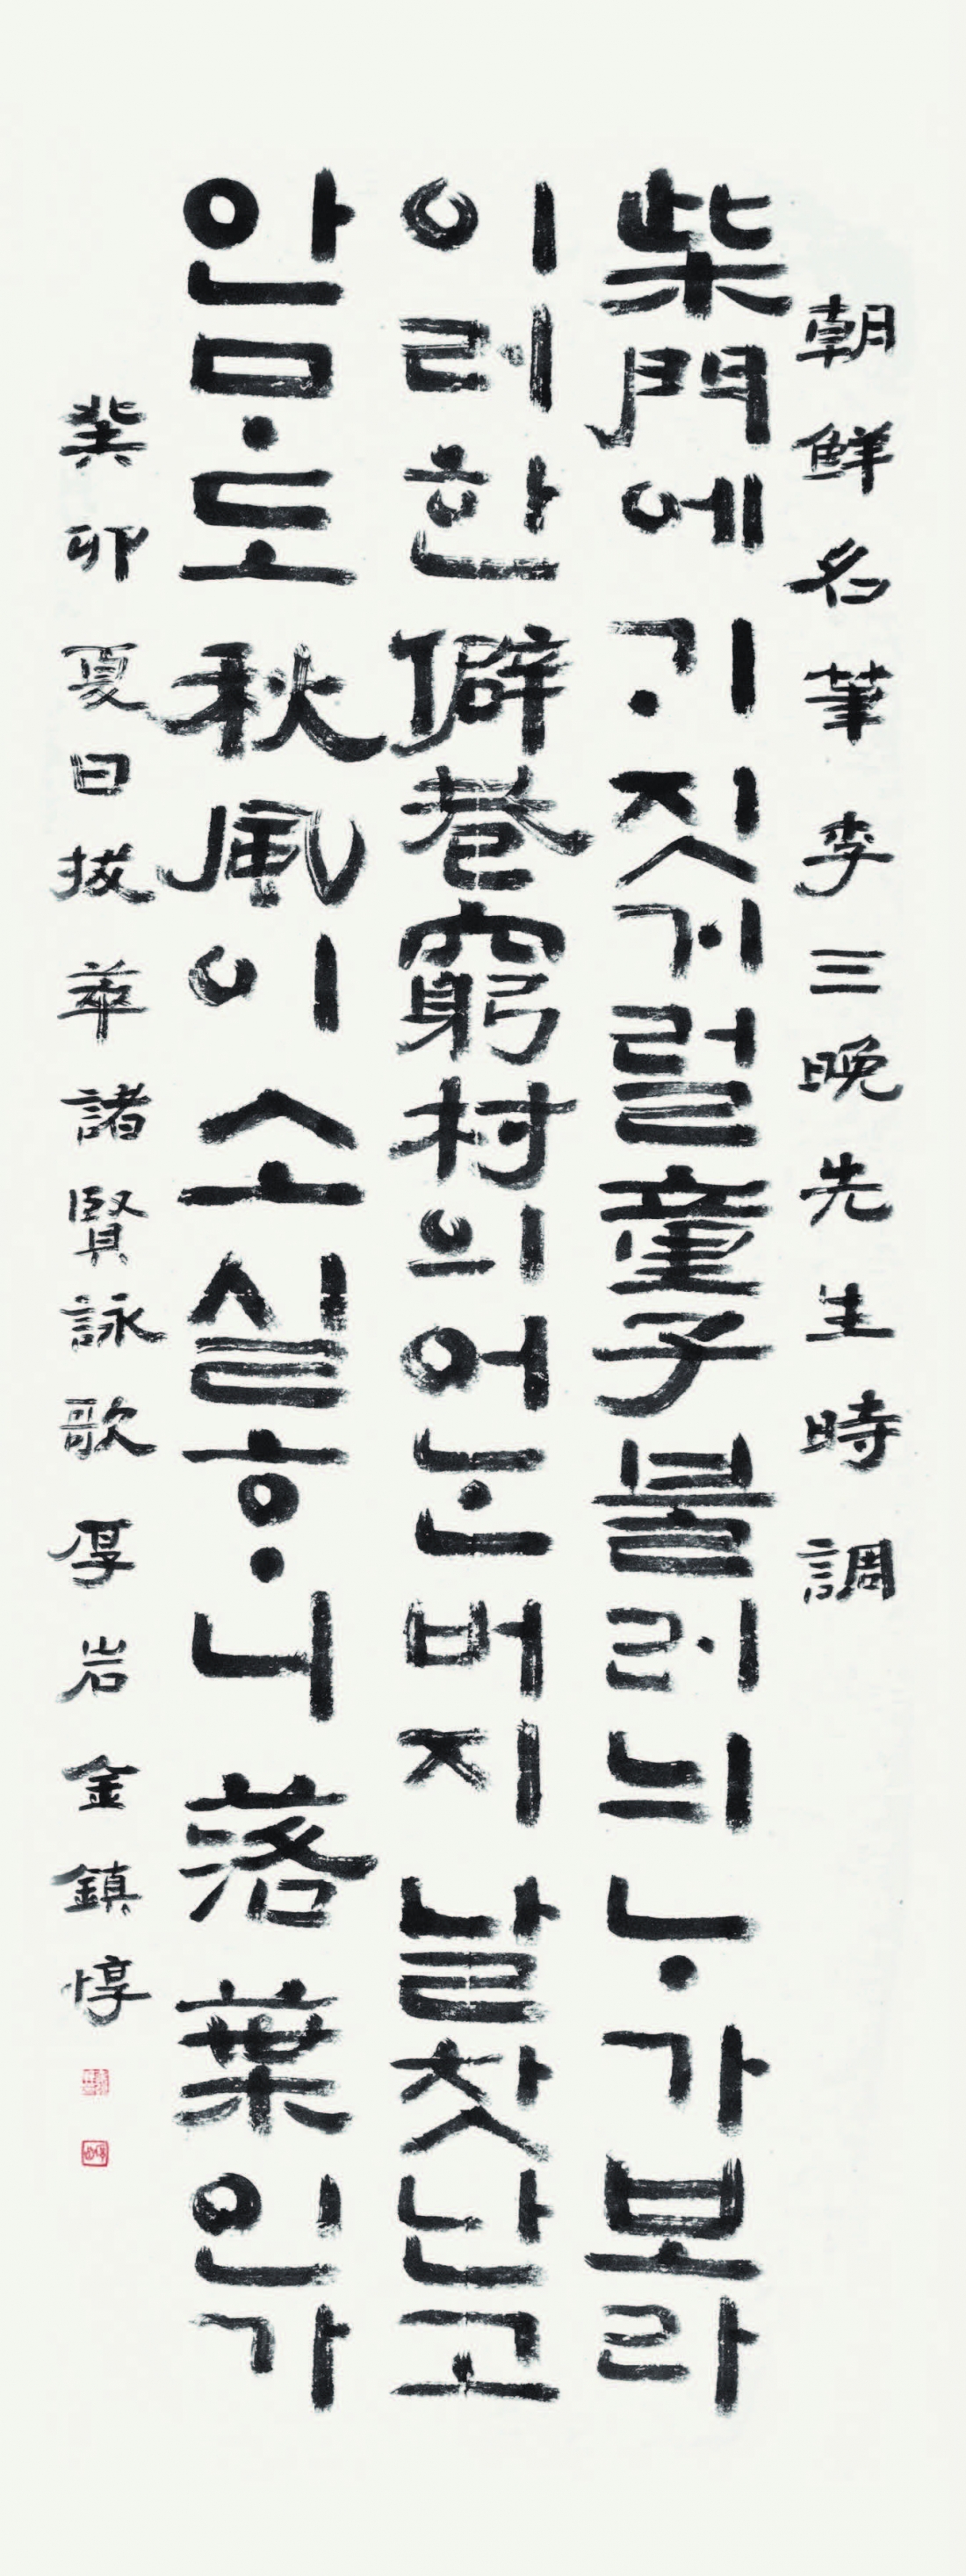 朝鮮名筆李三晩先生時調
柴門에 ᄀᆡ 짓거럴 童子 불러 늬 ᄂᆞ가보라
이러한 僻巷窮村의 어ᄂᆞᆫ 버지 날 찻난고
안ᄆᆞ도 秋風이 소실ᄒᆞ니 落葉인가
癸卯夏日拔萃諸賢詠歌 厚岩 金鎭惇